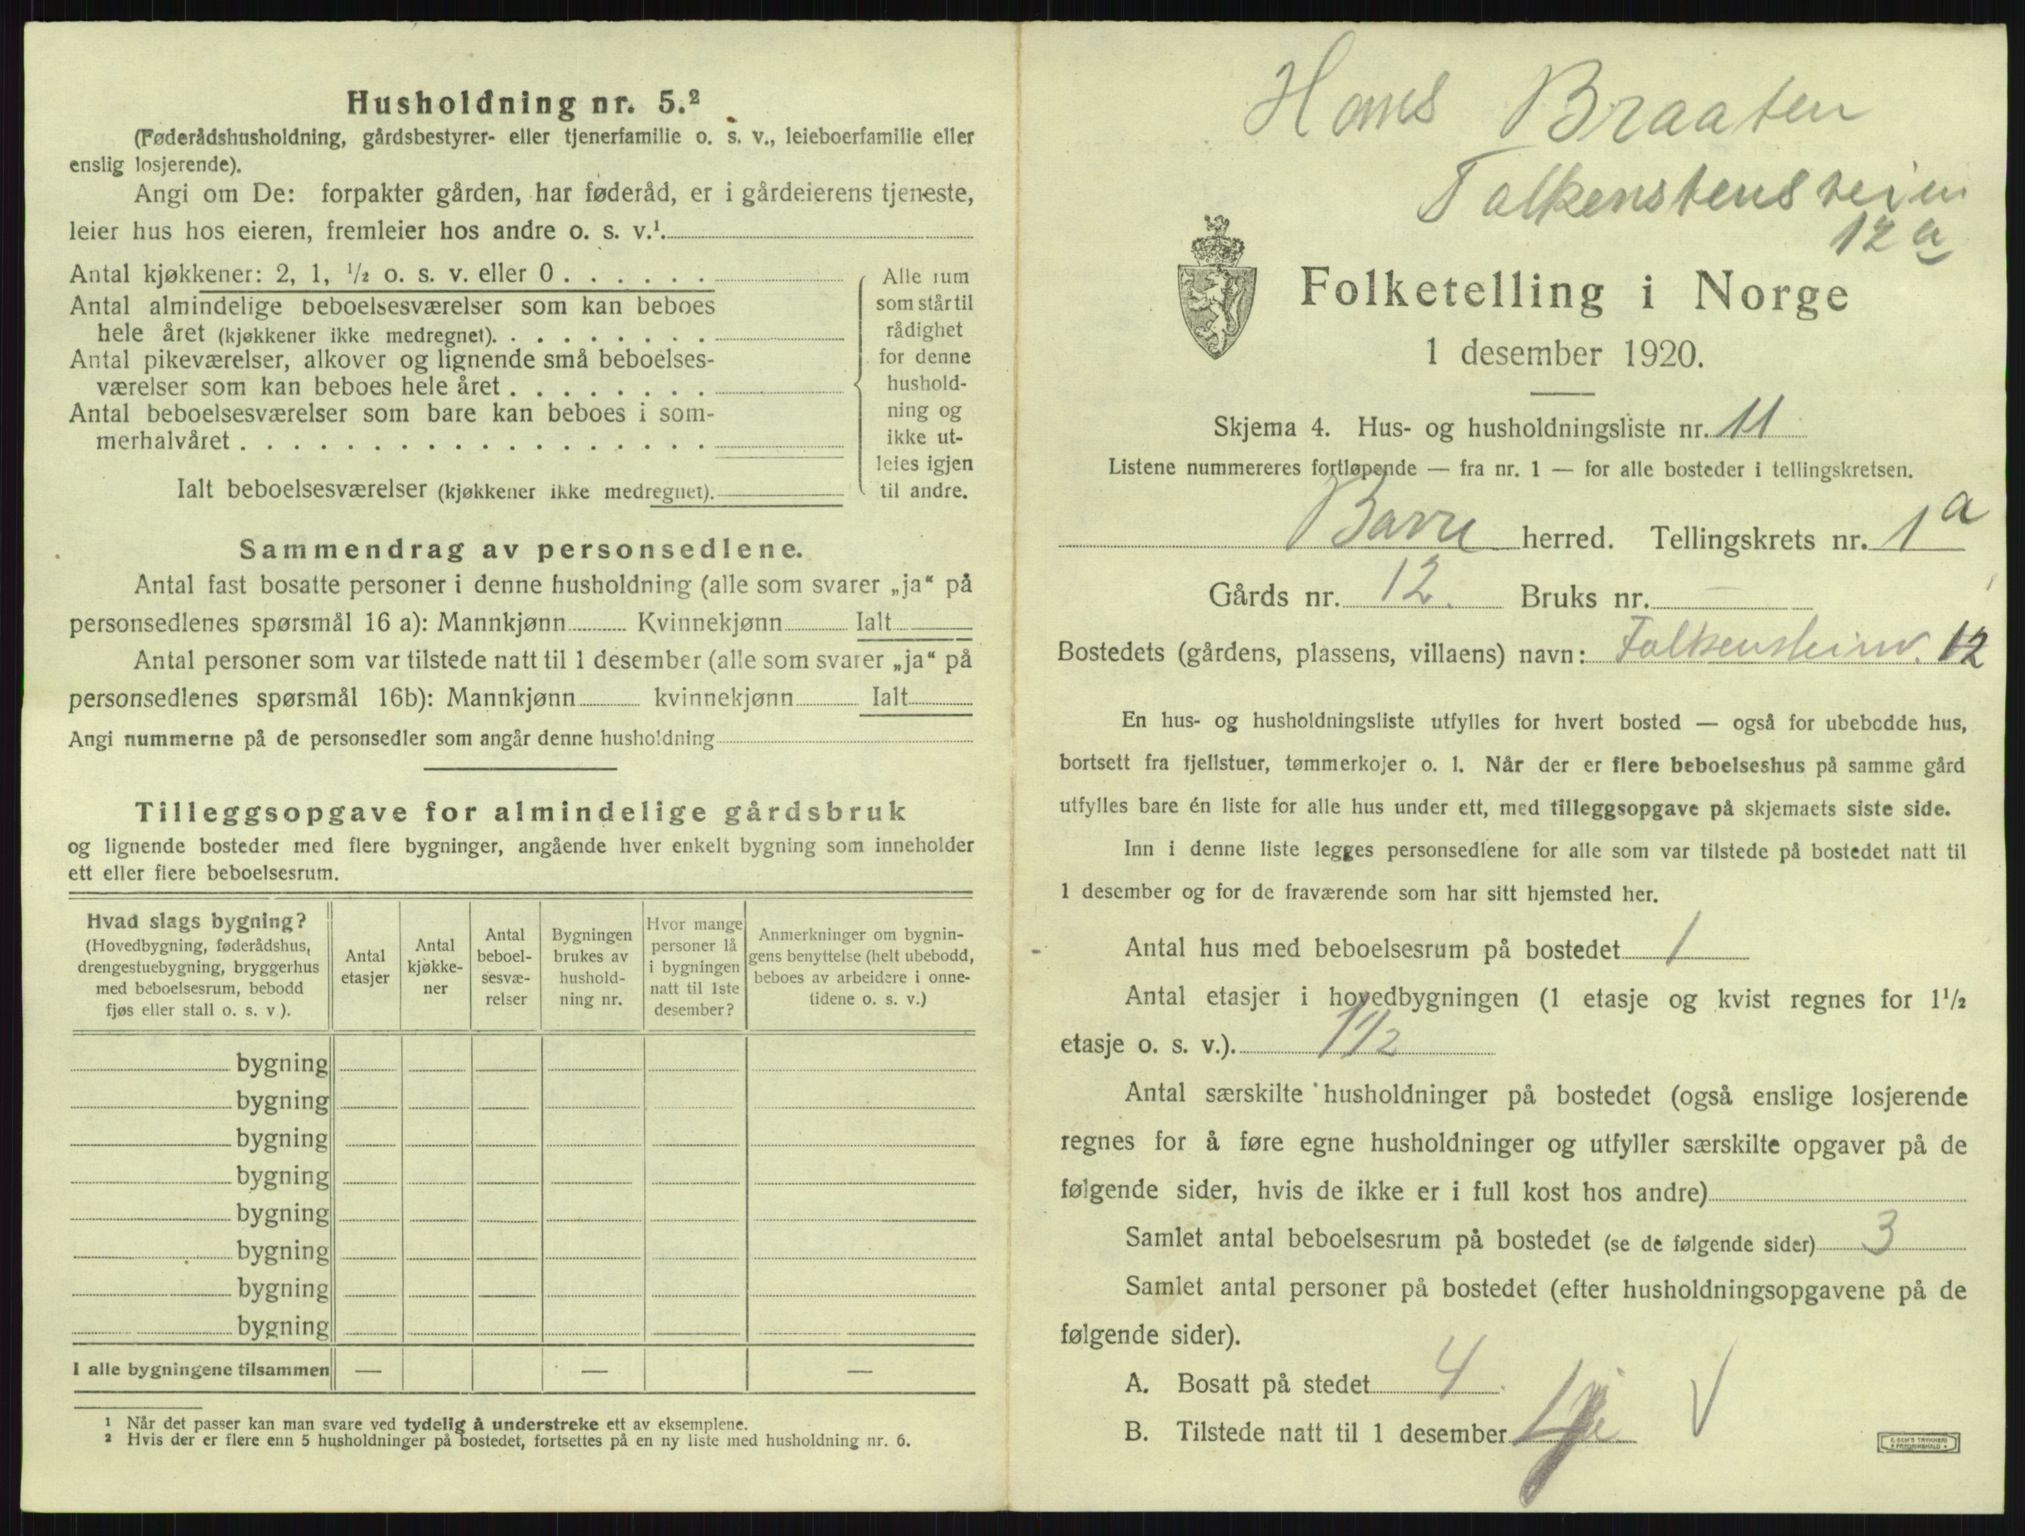 Husholdning nr. 5.²
(Føderådshusholdning, gårdsbestyrer- eller tjenerfamilie o. s. v., leieboerfamilie eller
enslig losjerende).
Angi om De: forpakter gården, har føderåd, er i gårdeierens tjeneste,
leier hus hos eieren, fremleier hos andre o. s. v.¹.
Antal kjøkkener: 2, 1, ¹/₂ o. s. v. eller 0 . . . . . .
Antal almindelige beboelsesværelser som kan beboes
hele året (kjøkkener ikke medregnet). . . . . . . . .
Antal pikeværelser, alkover og lignende små beboelses-
værelser som kan beboes hele året . . . . . . . .
Antal beboelsesværelser som bare kan beboes i som-
merhalvåret . . . . . . . . . . . . . . . . . .
Ialt beboelsesværelser (kjøkkener ikke medregnet).
Alle rum
som står til
rådighet
for denne
hushold-
ning og
ikke ut-
leies igjen
til andre.
Sammendrag av personsedlene.
Antal fast bosatte personer i denne husholdning (alle som svarer „ja“ på
personsedlenes spørsmål 16 a): Mannkjønn Kvinnekjønn Ialt
Antal personer som var tilstede natt til 1 desember (alle som svarer „ja“ på
personsedlenes spørsmål 16b): Mannkjønn kvinnekjønn Ialt
Angi nummerne på de personsedler som angår denne husholdning
Tilleggsopgave for almindelige gårdsbruk
og lignende bosteder med flere bygninger, angående hver enkelt bygning som inneholder
ett eller flere beboelsesrum.
Hvad slags bygning?
(Hovedbygning, føderådshus,
drengestuebygning, bryggerhus
med beboelsesrum, bebodd
fjøs eller stall o. s. v ).
Antal
etasjer
Antal
kjøkke-
ner
Antal
beboel-
sesvæ-
relser
Bygningen
brukes av
hushold-
ning nr.
Hvor mange
personer lå
i bygningen
natt til 1ste
desember?
Anmerkninger om bygnin-
gens benyttelse (helt ubebodd,
beboes av arbeidere i onne-
tidene o. s. v.)
bygning
bygning
bygning
bygning
bygning
bygning
bygning
bygning
I alle bygningene tilsammen — — —
¹ Når det passer kan man svare ved tydelig å understreke ett av eksemplene.
² Hvis der er flere enn 5 husholdninger på bostedet, fortsettes på en ny liste med husholdning nr. 6.
Hans Braaten
Falkenstensveien
12 a
Folketelling i Norge
1 desember 1920.
Skjema 4. Hus- og husholdningsliste nr. 11
Listene nummereres fortløpende — fra nr. 1 — for alle bosteder i tellingskretsen.
Borre herred. Tellingskrets nr. 1 a
Gårds nr. 12. Bruks nr. —
Bostedets (gårdens, plassens, villaens) navn: Falkensteinv. 12
En hus- og husholdningsliste utfylles for hvert bosted — også for ubebodde hus,
bortsett fra fjellstuer, tømmerkojer o. l. Når der er flere beboelseshus på samme gård
utfylles bare én liste for alle hus under ett, med tilleggsopgave på skjemaets siste side.
Inn i denne liste legges personsedlene for alle som var tilstede på bostedet natt til
1 desember og for de fraværende som har sitt hjemsted her.
Antal hus med beboelsesrum på bostedet 1
Antal etasjer i hovedbygningen (1 etasje og kvist regnes for 1¹/₂
etasje o. s. v.). 1 1/2
Antal særskilte husholdninger på bostedet (også enslige losjerende
regnes for å føre egne husholdninger og utfyller særskilte opgaver på de
følgende sider, hvis de ikke er i full kost hos andre)
Samlet antal beboelsesrum på bostedet (se de følgende sider) 3
Samlet antal personer på bostedet (efter husholdningsopgavene på de
følgende sider).
A. Bosatt på stedet 4
B. Tilstede natt til 1 desember 4 V